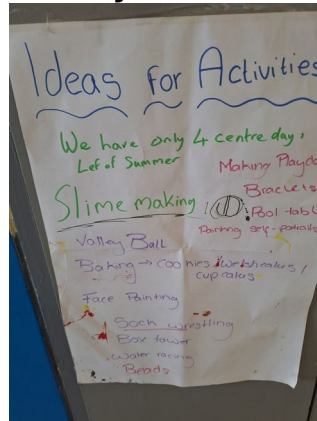 Ideas for Activities
We have only 4 centre days
Lef of Summer
Making Playdo
Bracelets
Slime making
Pool-tabl
Painting self-portraits
Valley Ball
Baking → Cookies /
cupcakes
Face Painting
Sock wrestling
Box tower
Water racing
Beads